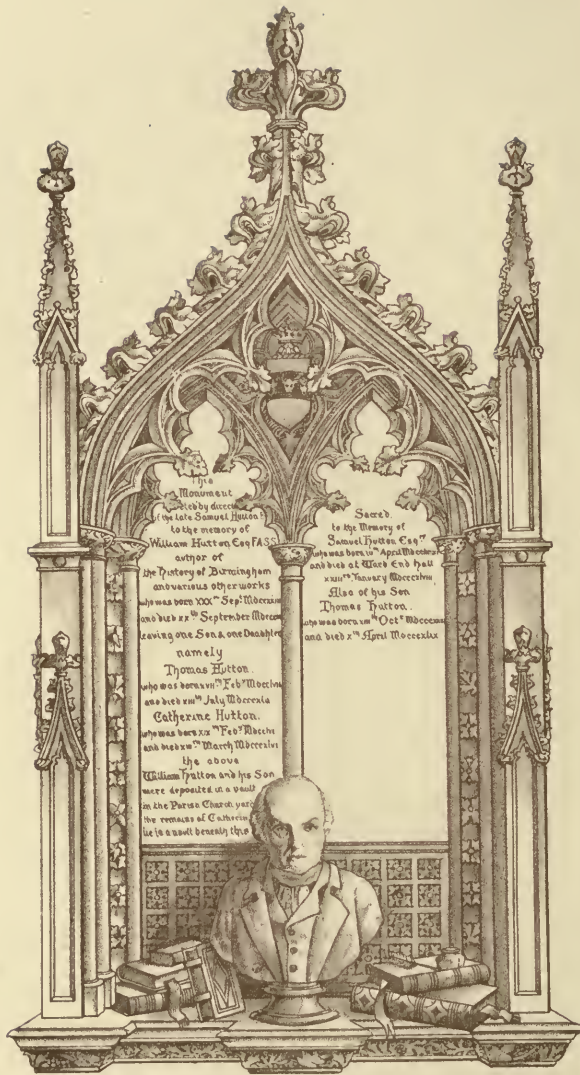 This
Monument
by direc
of the late Samuel Hutton
to the memory of
William Hutton Esq FASS
author of
the History of Birmingham
and various other works
who was born XXXth Sept
and died xxth September
leaving one Son & one Daughter
namely
Thomas Hutton.
who was born xviith Feby
and died xiiith July
Catherine Hutton.
who was born xixth Feby
and died March
the above
William Hutton and his Son
were deposited in a vault
in the Parish Church yard
the remains of Catherin
lie in a vault beneath this
Sacred.
to the Memory of
Samuel Hutton Esqre
who was born ivth April
and died at Ward End Hall
January
Also of his Son
Thomas Hutton.
who was born Octr
and died xth April Mdcccxlix